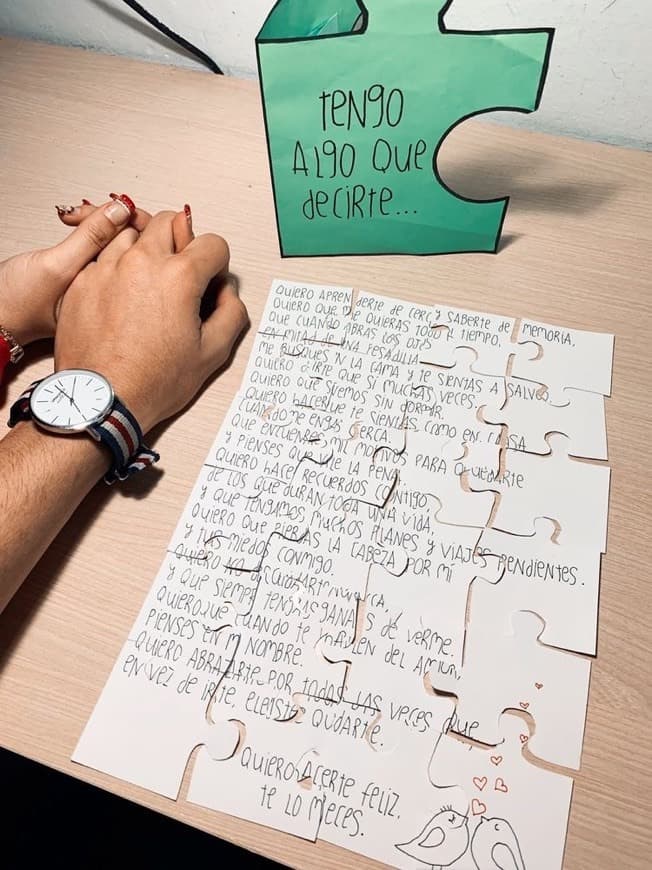 TENGO
ALGO QUE
decirte...
QUIERO APRENDERTE DE CERCA Y SABERTE DE MEMORIA.
QUIERO QUE ME QUIERAS TODO EL TIEMPO,
QUE CUANDO ABRAS LOS OJOS
EN MITAD DE UNA PESADILLA
ME BUSQUES EN LA CAMA Y TE SIENTAS A SALVO.
QUIERO DECIRTE QUE SÍ MUCHAS VECES.
QUIERO QUE SOÑEMOS SIN DORMIR.
QUIERO HACER QUE TE SIENTAS COMO EN CASA
CUANDO ME TENGAS CERCA.
QUE ENCUENTRES MIL MOTIVOS PARA QUEDARTE
Y PIENSES QUE VALE LA PENA.
QUIERO HACER RECUERDOS CONTIGO,
DE LOS QUE DURAN TODA UNA VIDA,
Y QUE TENGAMOS MUCHOS PLANES Y VIAJES PENDIENTES.
QUIERO QUE PIERDAS LA CABEZA POR MÍ
Y TUS MIEDOS CONMIGO.
QUIERO NO NUNCA,
Y QUE SIEMPRE TENGAS GANAS DE VERME.
QUIERO QUE CUANDO TE HABLEN DEL AMOR,
PIENSES EN MI NOMBRE.
QUIERO ABRAZARTE POR TODAS LAS VECES QUE,
EN VEZ DE IRTE, ELEGISTE QUEDARTE.
QUIERO HACERTE FELIZ.
TE LO MERECES.